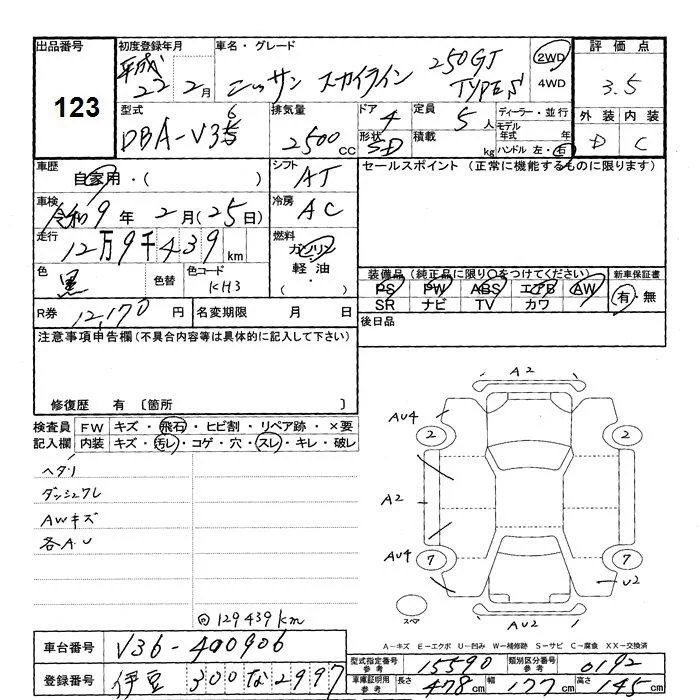 出品番号
123
初度登録年月
平成
22 2月
車名・グレード
ニッサン スカイライン 250GT
TYPE S
2WD
4WD
評価点
3.5
外装 内装
D C
型式
DBA-V36
排気量
2500cc
ドア
4
形状
SD
定員
5人
積載
kg
ディーラー・並行
モデル年式 年
ハンドル 左・右
車歴
自家用・( )
シフト
AT
セールスポイント (正常に機能するものに限ります)
車検
令和9年 2月(25日)
冷房
AC
走行
12万9千439km
燃料
ガソリン
軽油
( ・ )
色
黒
色替
色コード
KH3
装備品 (純正品に限り○をつけてください)
新車保証書
PS PW ABS エアB AW
SR ナビ TV カワ
有・無
R券 12,170円
名変期限 月 日
後日品
注意事項申告欄 (不具合内容等は具体的に記入して下さい)
修復歴 有 〔箇所 〕
検査員 FW キズ・飛石・ヒビ割・リペア跡・×要
記入欄 内装 キズ・汚レ・コゲ・穴・スレ・キレ・破レ
ヘタリ
ダッシュスレ
AWキズ
各A.U
129439km
A2
AU4
2 2
A2
AU4
7 7
U2
AU2
スペア
A-キズ E-エクボ U-凹み W-補修跡 S-サビ C-腐食 XX-交換済
車台番号 V36-400906
型式指定番号 参考 15590
類別区分番号 参考 0192
登録番号 伊豆 300 な 2997
車庫証明用 参考 長さ 478cm 幅 177cm 高さ 145cm